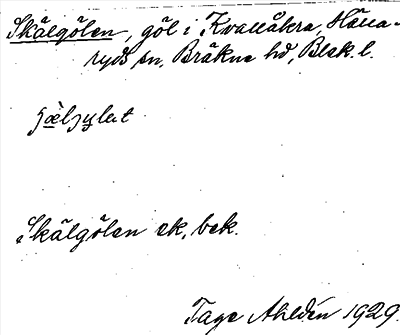 Skälgölen, göl i Kvallåkra, Hälla-
ryds sn, Bräkne hd, Blek. l.
Skälgölen ek, bek.
Tage Ahldén 1929.